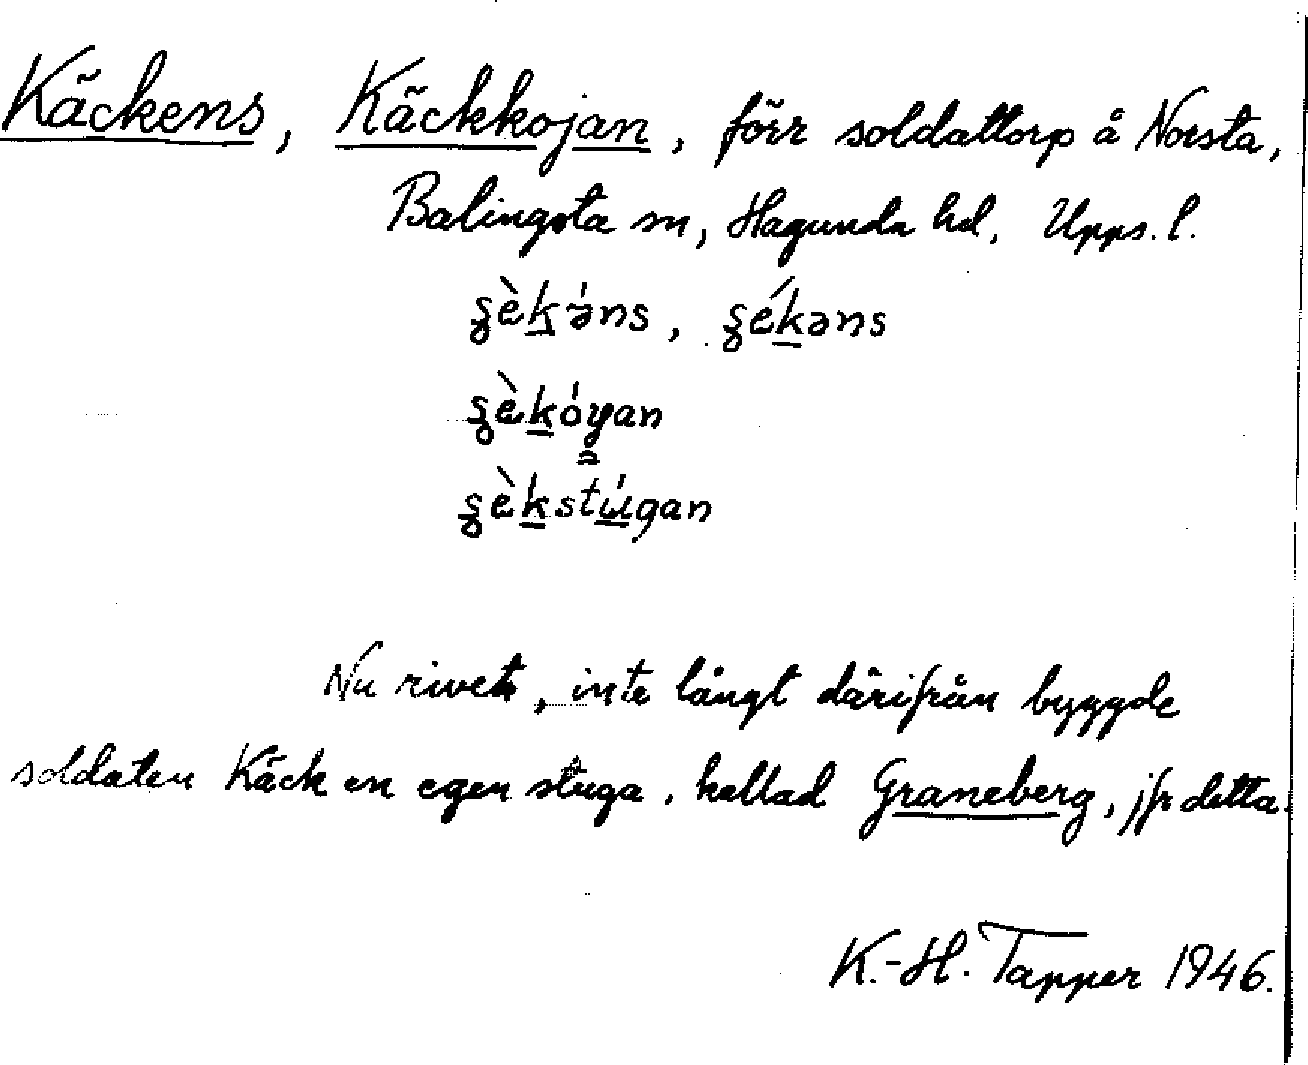 Käckens, Käckkojan, förr soldattorp å Norsta,
Balingsta sn, Hagunda hd, Upps. l.
ʂèk̠ə́ns, ʂék̠əns
ʂèk̠óyan
ʂèk̠stúgan
Nu rivet, inte långt därifrån byggde
soldaten Käck en egen stuga, kallad Graneberg, jfr detta.
K.-H. Tapper 1946.